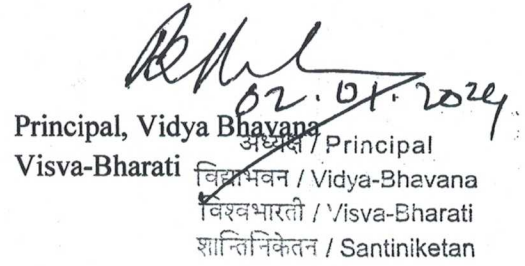 02.01.2024
Principal, Vidya Bhavana
Visva-Bharati
अध्यक्ष / Principal
विद्याभवन / Vidya-Bhavana
विश्वभारती / Visva-Bharati
शान्तिनिकेतन / Santiniketan